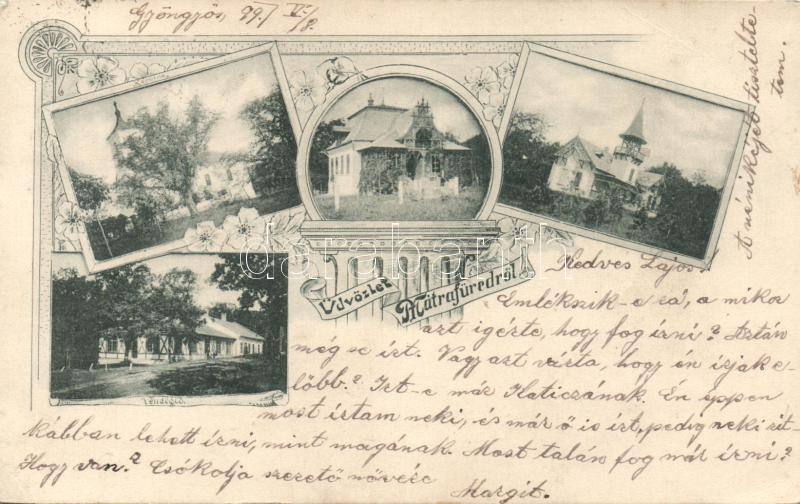 Gyöngyös, 99./ V./8.
Üdvözlet
Mátrafüredről
Vendéglő.
darabanth
Kedves Lajos!
Emlékszik-e rá, a mikor
azt igérte, hogy fog írni? Aztán
még se írt. Vagy azt várta, hogy én írjak e-
lőbb? Írt-e már Katiczának. Én éppen
most írtam neki, és már ő is írt, pedig neki rit-
kábban lehett írni, mint magának. Most talán fog már írni?
Hogy van? Csókolja szerető nővére
Margit.
A néniket tisztelte-
tem.